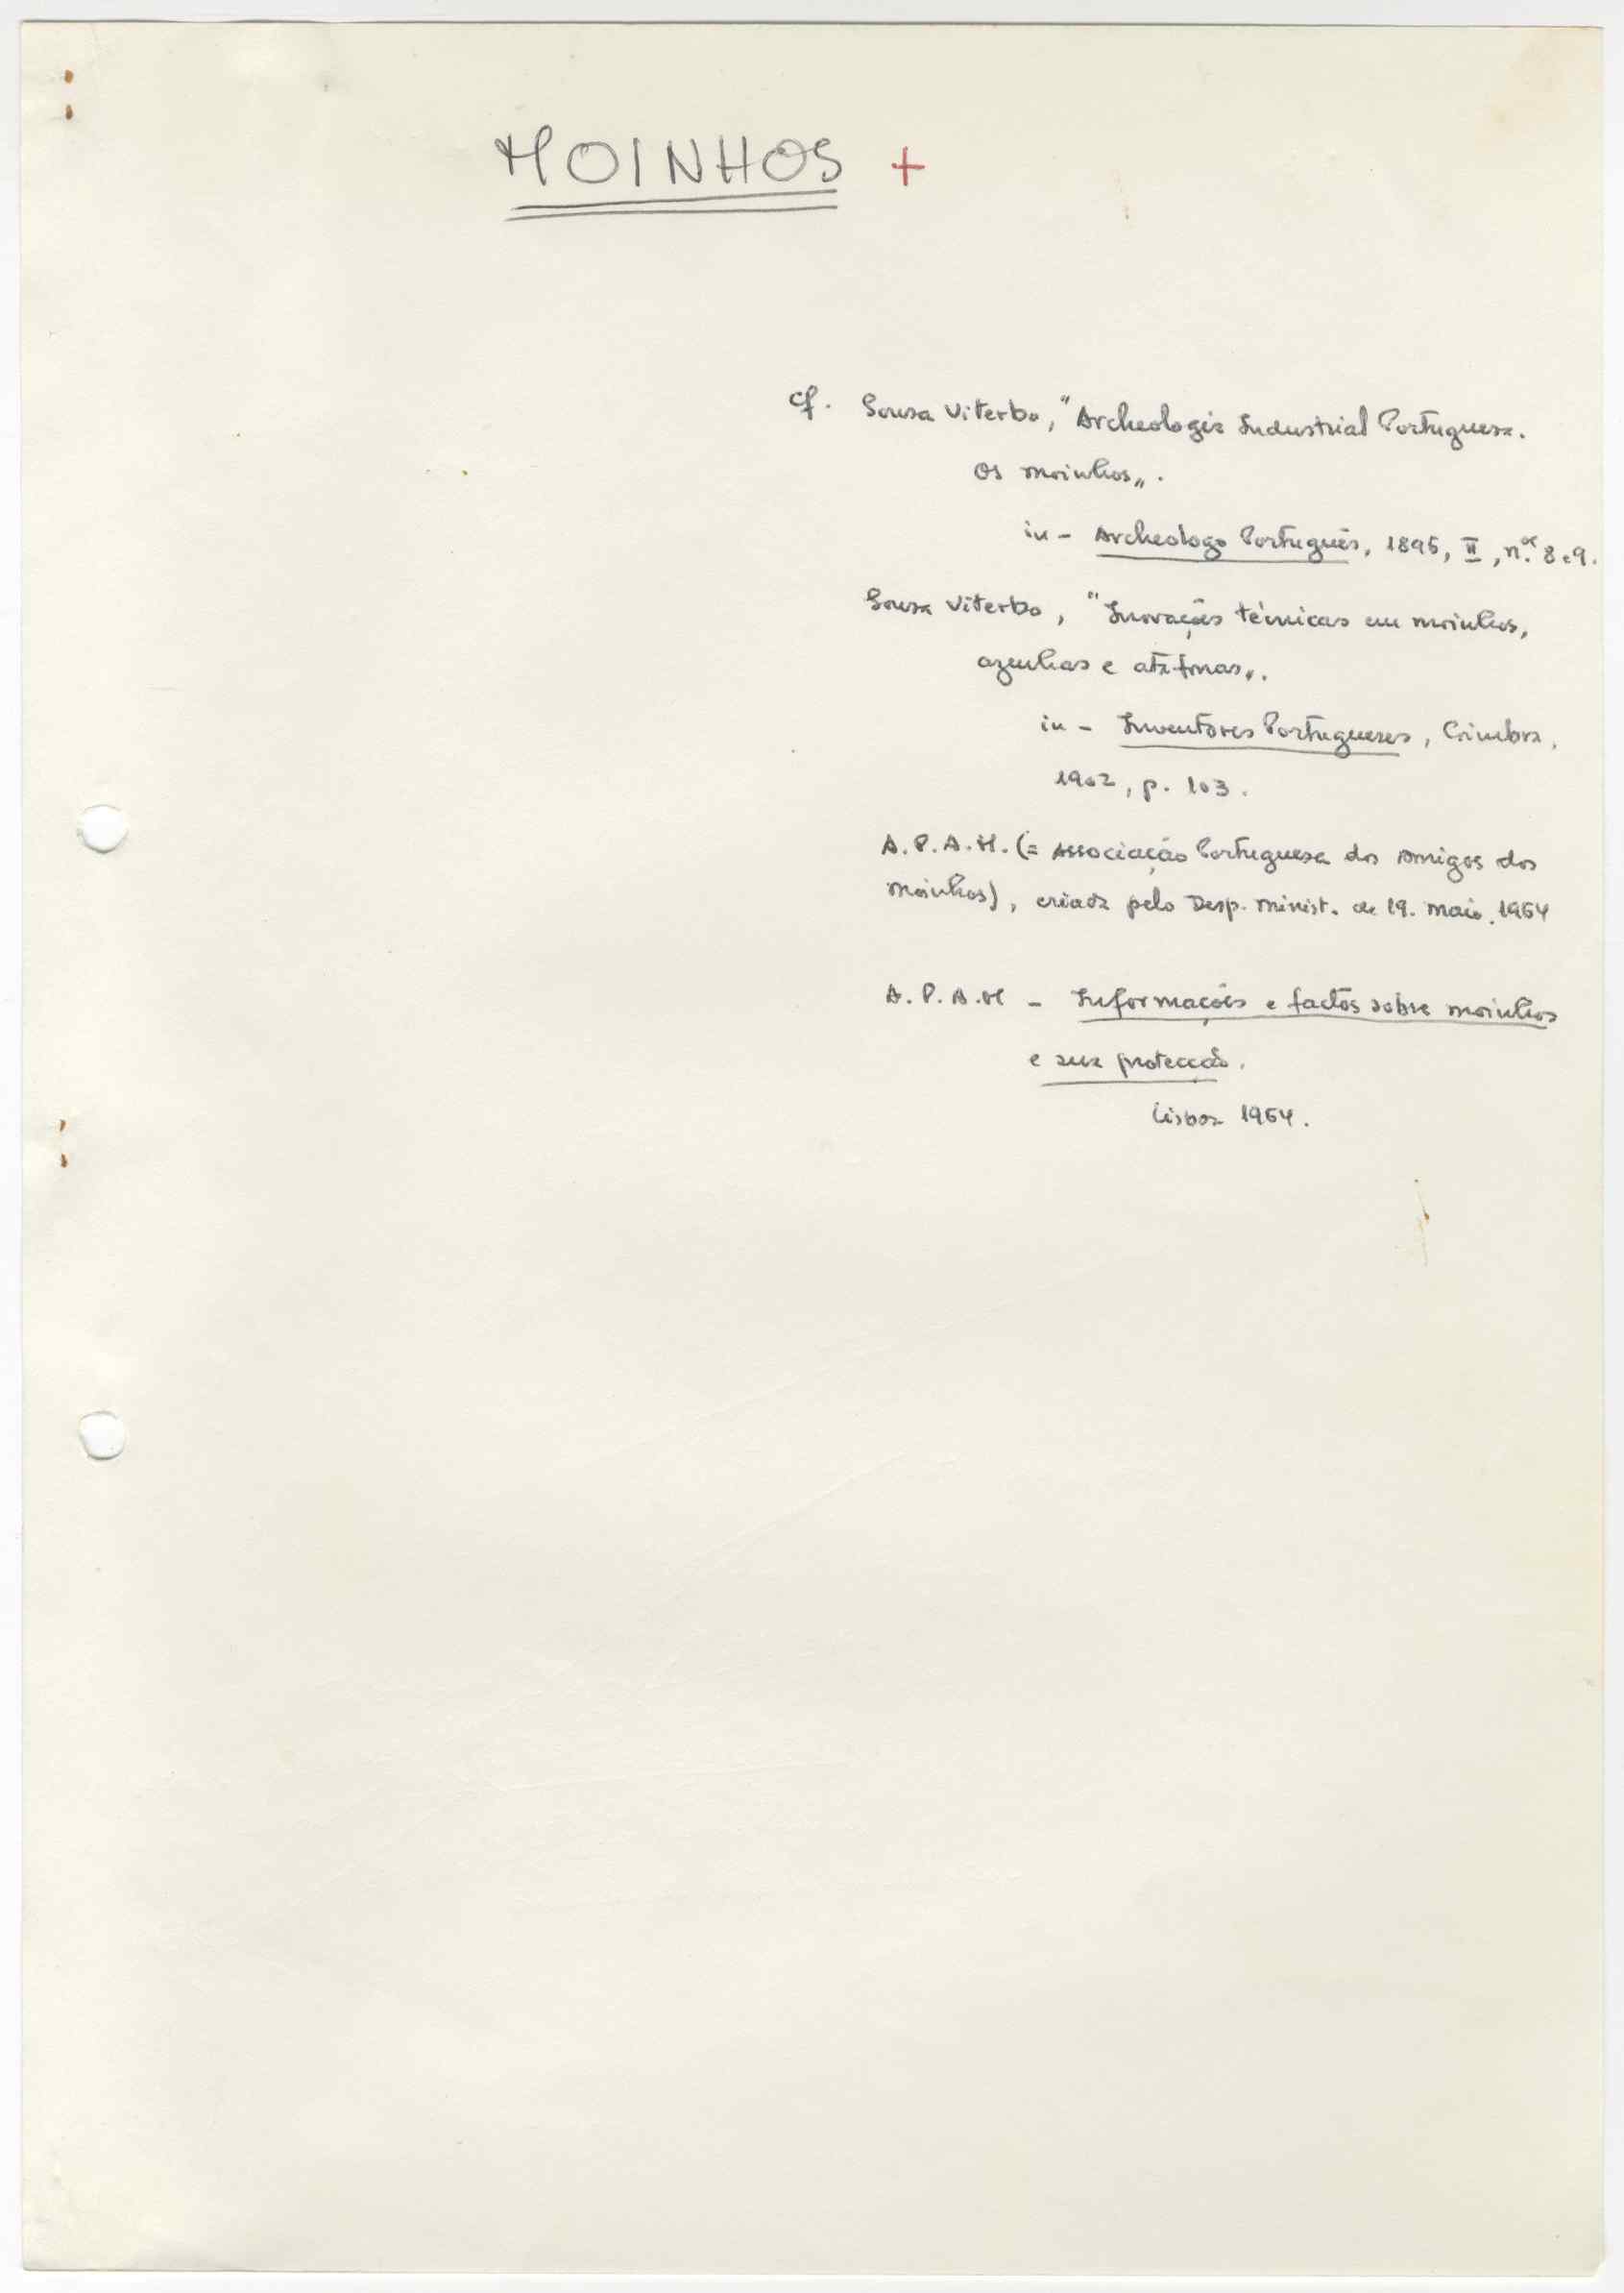 MOINHOS +
cf. Sousa Viterbo, "Archeologia Industrial Portuguesa.
Os moinhos".
in - Archeologo Português, 1896, II, n.os 8 e 9.
Sousa Viterbo, "Inovações técnicas em moinhos,
azenhas e atafonas".
in - Inventores Portugueses, Coimbra,
1902, p. 103.
A.P.A.M. (= Associação Portuguesa dos Amigos dos
Moinhos), criada pelo Desp. Minist. de 19. Maio. 1964
A.P.A.M - Informações e factos sobre moinhos
e sua protecção.
Lisboa 1964.